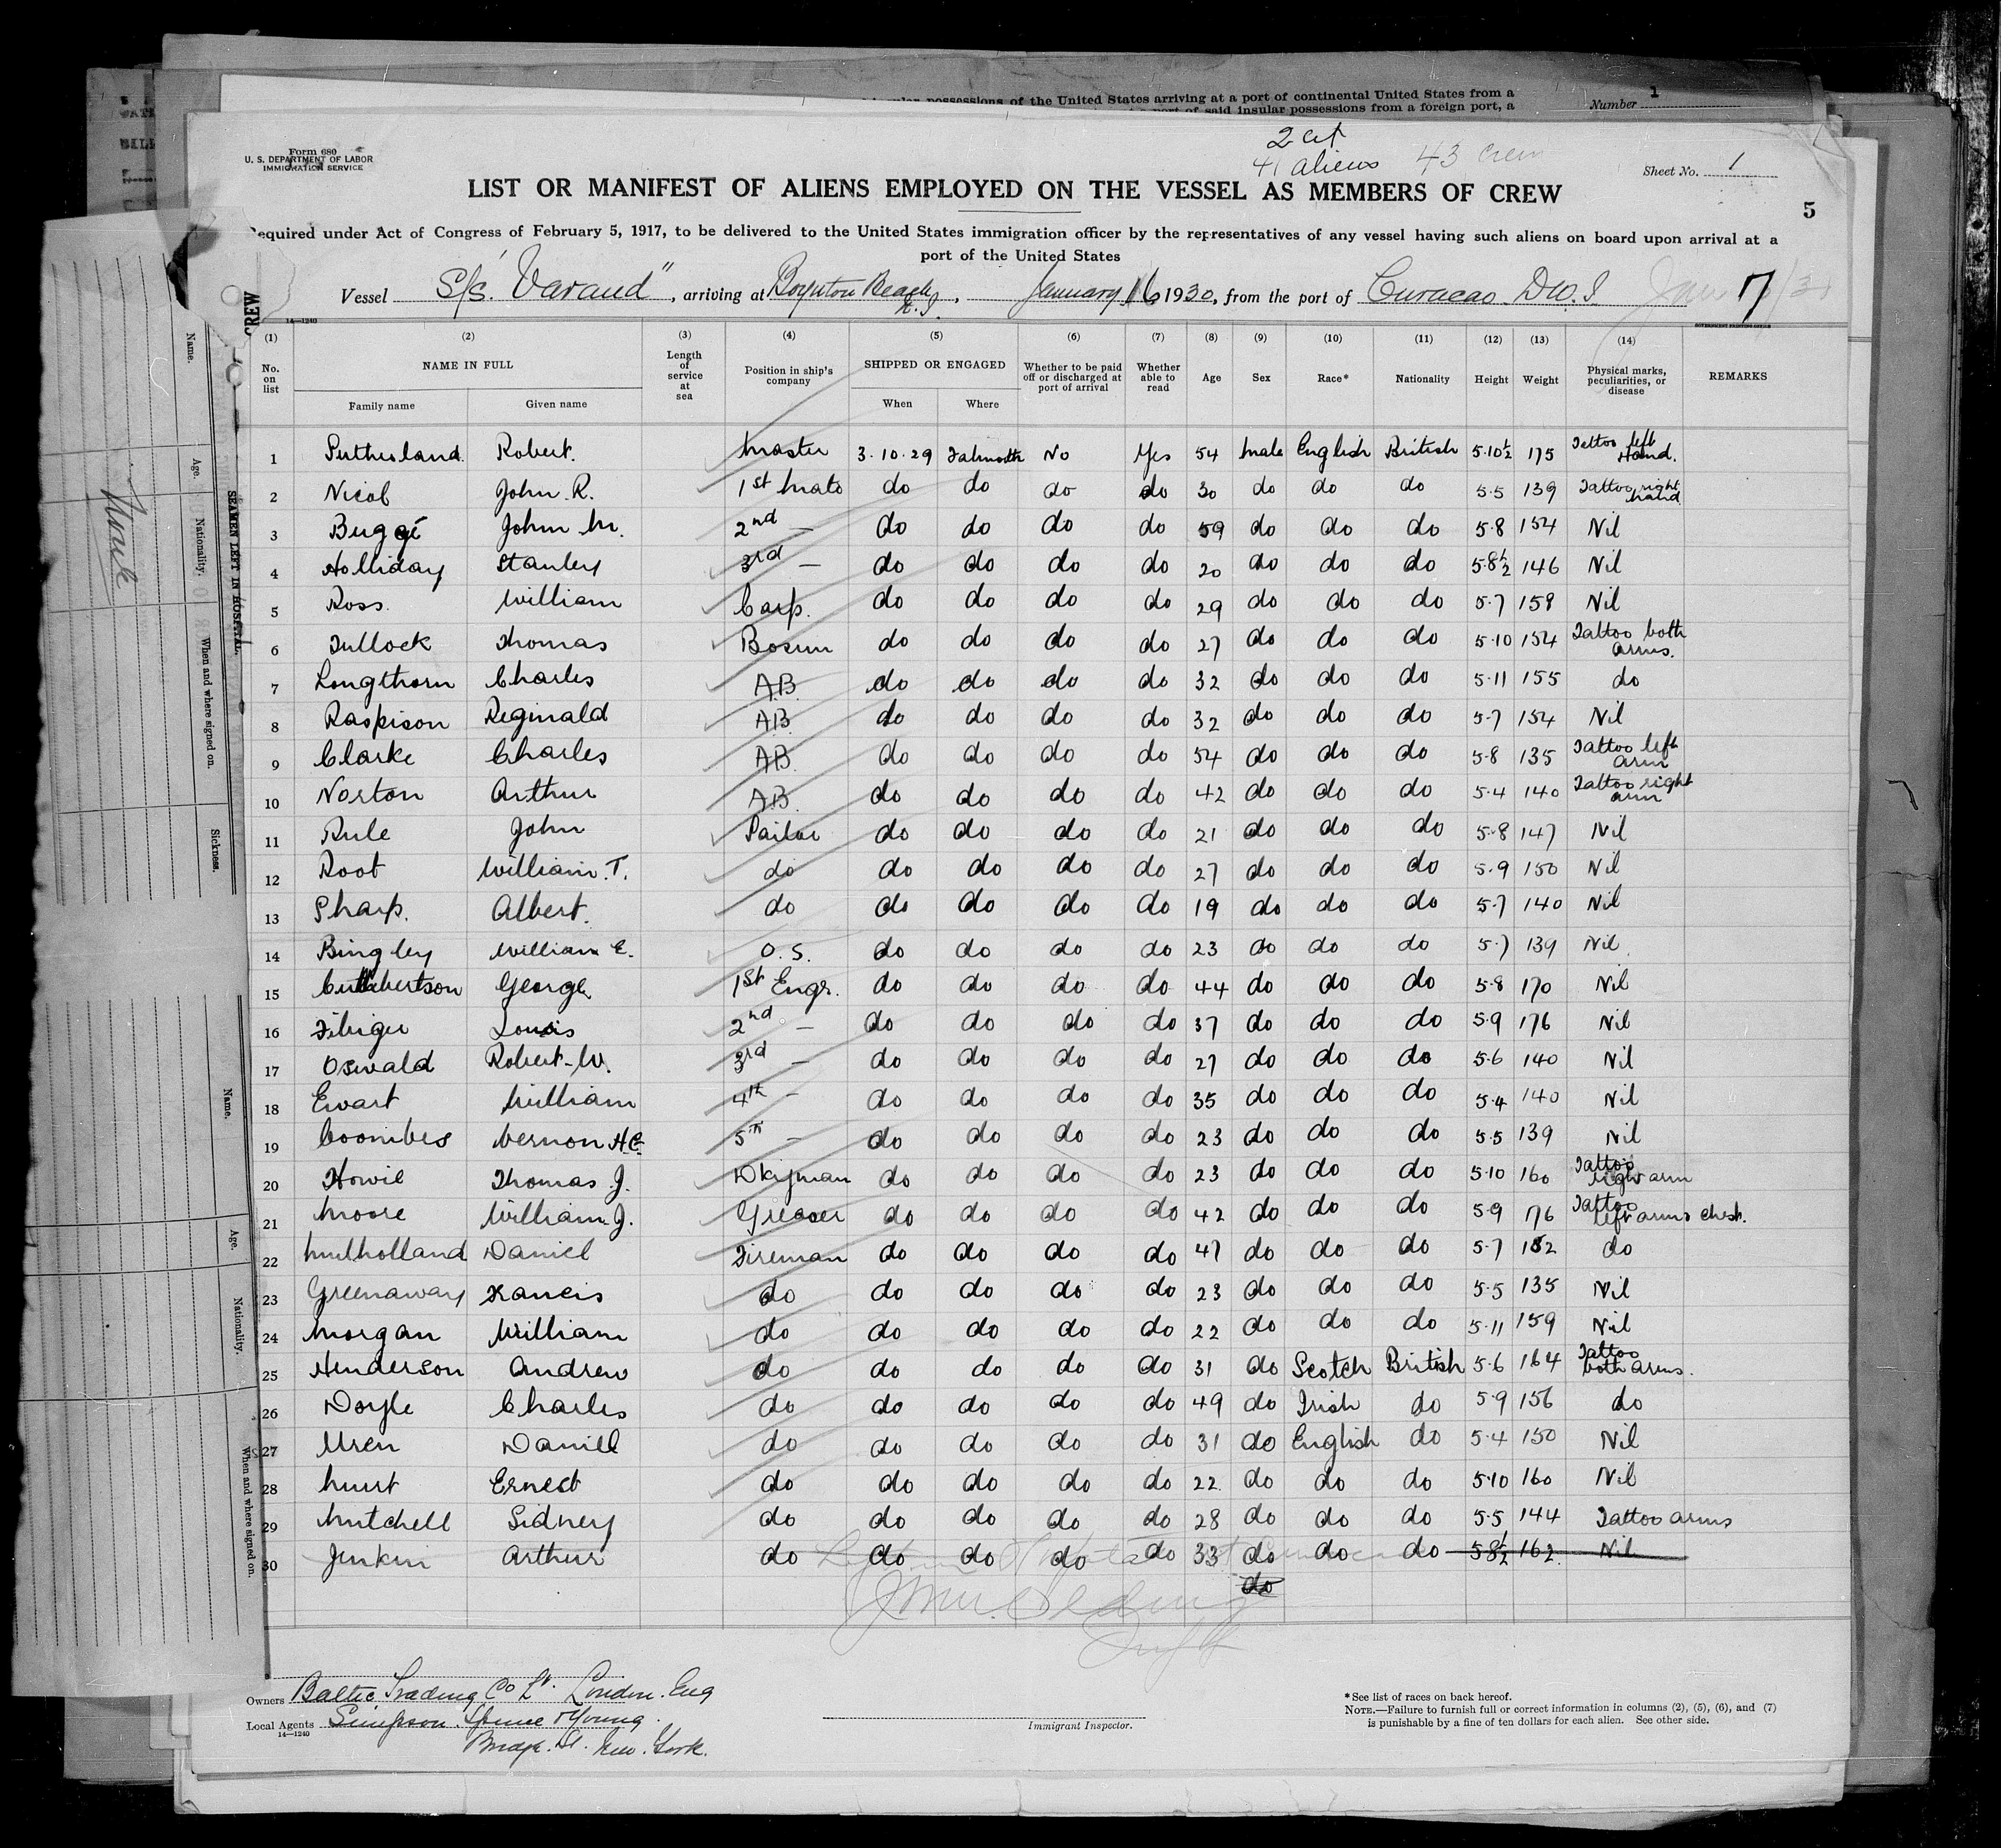 insular possessions of the United States arriving at a port of continental United States from a
a port of said insular possessions from a foreign port, a
Number 1
Form 680
U. S. DEPARTMENT OF LABOR
IMMIGRATION SERVICE
2 cit
41 aliens 43 crew
Sheet No. 1
LIST OR MANIFEST OF ALIENS EMPLOYED ON THE VESSEL AS MEMBERS OF CREW
5
Required under Act of Congress of February 5, 1917, to be delivered to the United States immigration officer by the representatives of any vessel having such aliens on board upon arrival at a
port of the United States
Vessel S/S. "Varand", arriving at Boynton Beach, January 16 1930, from the port of Curacao D.W.I 7
14—1240
(1) (2) (3) (4) (5) (6) (7) (8) (9) (10) (11) (12) (13) (14)
No. on list NAME IN FULL Length of service at sea Position in ship's company SHIPPED OR ENGAGED Whether to be paid off or discharged at port of arrival Whether able to read Age Sex Race* Nationality Height Weight Physical marks, peculiarities, or disease REMARKS
Family name Given name When Where
1 Sutherland. Robert. Master 3.10.29 Falmouth No Yes 54 Male English British 5.10½ 175 Tattoo left Hand.
2 Nicol John R. 1st Mate do do do do 30 do do do 5.5 139 Tattoo right hand
3 Buggé John M. 2nd — do do do do 59 do do do 5.8 154 Nil
4 Holliday Stanley 3rd — do do do do 20 do do do 5.8½ 146 Nil
5 Ross. William Carp. do do do do 29 do do do 5.7 158 Nil
6 Tullock Thomas Bosun do do do do 27 do do do 5.10 154 Tattoo both arms.
7 Longthorn Charles A.B. do do do do 32 do do do 5.11 155 do
8 Raspison Reginald A.B. do do do do 32 do do do 5.7 154 Nil
9 Clarke Charles A.B. do do do do 54 do do do 5.8 135 Tattoo left arm
10 Norton Arthur A.B. do do do do 42 do do do 5.4 140 Tattoo right arm
11 Rule John Sailor do do do do 21 do do do 5.8 147 Nil
12 Root William.T. do do do do do 27 do do do 5.9 150 Nil
13 Sharp. Albert. do do do do do 19 do do do 5.7 140 Nil
14 Bingley William E. O.S. do do do do 23 do do do 5.7 139 Nil
15 Cuthbertson George 1st Engr. do do do do 44 do do do 5.8 170 Nil
16 Fibiger Louis 2nd — do do do do 37 do do do 5.9 176 Nil
17 Oswald Robert.W. 3rd — do do do do 27 do do do 5.6 140 Nil
18 Ewart William 4th — do do do do 35 do do do 5.4 140 Nil
19 Coombes Vernon H.C. 5th — do do do do 23 do do do 5.5 139 Nil
20 Howie Thomas J. Dkyman do do do do 23 do do do 5.10 160 Tattoo right arm
21 Moore William J. Greaser do do do do 42 do do do 5.9 176 Tattoo left arms chest.
22 Mulholland Daniel Fireman do do do do 47 do do do 5.7 152 do
23 Greenaway Francis do do do do do 23 do do do 5.5 135 Nil
24 Morgan William do do do do do 22 do do do 5.11 159 Nil
25 Henderson Andrew do do do do do 31 do Scotch British 5.6 164 Tattoo both arms.
26 Doyle Charles do do do do do 49 do Irish do 5.9 156 do
27 Uren Daniel do do do do do 31 do English do 5.4 150 Nil
28 Hurst Ernest do do do do do 22 do do do 5.10 160 Nil
29 Mutchell Sidney do do do do do 28 do do do 5.5 144 Tattoo arms
30 Jenkin Arthur do do do do do 33 do do do 5.8½ 162. Nil
do
Owners Baltic Trading Co Ld. London. Eng
Local Agents Simpson. Spence & Young.
14—1240
Bridge. St. New. York.
Immigrant Inspector.
*See list of races on back hereof.
NOTE.—Failure to furnish full or correct information in columns (2), (5), (6), and (7)
is punishable by a fine of ten dollars for each alien. See other side.
CREW
SEAMEN LEFT IN HOSPITAL.
Name.
Age.
Nationality.
When and where signed on.
Sickness.
Name.
Age.
Nationality.
When and where signed on.